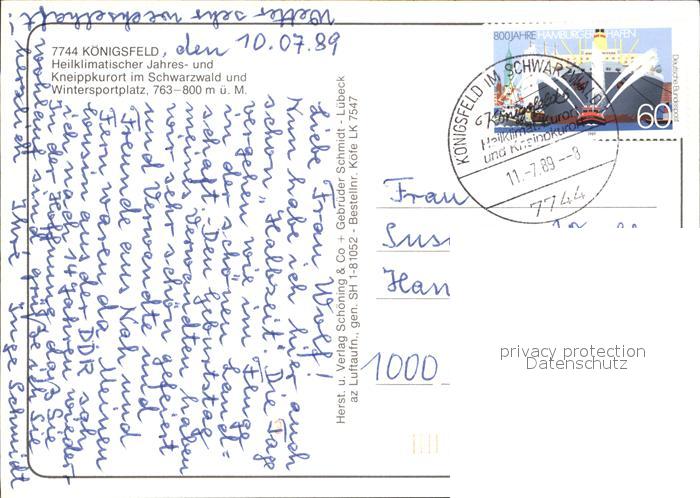 7744 KÖNIGSFELD, den 10.07.89
Heilklimatischer Jahres- und
Kneippkurort im Schwarzwald und
Wintersportplatz, 763–800 m ü. M.
Liebe Frau Wolf!
Nun habe ich hier auch
schon "Halbzeit". Die Tage
vergehen wie im Fluge
in der schönen Land=
schaft. Den Geburtstag
meines Verwandten haben
wir sehr schön gefeiert
mit Verwandten und
Freunde aus Nah und
Fern waren da. Meinen
Cousin aus der DDR sah
ich nach 14 Jahren wieder.
In der Hoffnung, daß Sie
wohlauf sind grüße ich Sie
herzlich Ihre Inge Schmidt
Wetter sehr wechselhaft!
Herst. u. Verlag Schöning & Co + Gebrüder Schmidt - Lübeck
az Luftaufn., gen. SH 1-81052 - Bestellnr. Köfe LK 7547
800 JAHRE HAMBURGER HAFEN
60
Deutsche Bundespost
KÖNIGSFELD IM SCHWARZWALD
Königsfeld
Heilklimat. Kurort
und Kneippkurort
11.-7.89--8
7744
Frau
Sus
Han
1000
privacy protection
Datenschutz